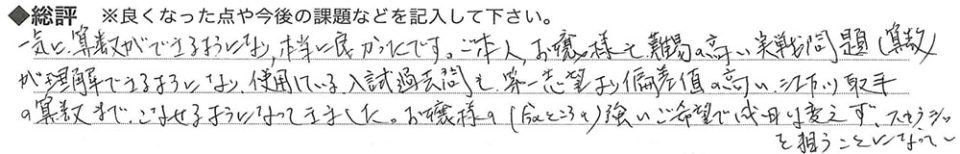 ◆総評 ※良くなった点や今後の課題などを記入して下さい。
一気に算数ができるようになり、本当に良かったです。ご本人、お嬢様も難易の高い実戦問題(算数)
が理解できるようになり、使用している入試過去問も、第一志望より偏差値の高い江戸川取手
の算数まで、こなせるようになってきました。お嬢様の(今のところの)強いご希望で は変えず、
を狙うことになって